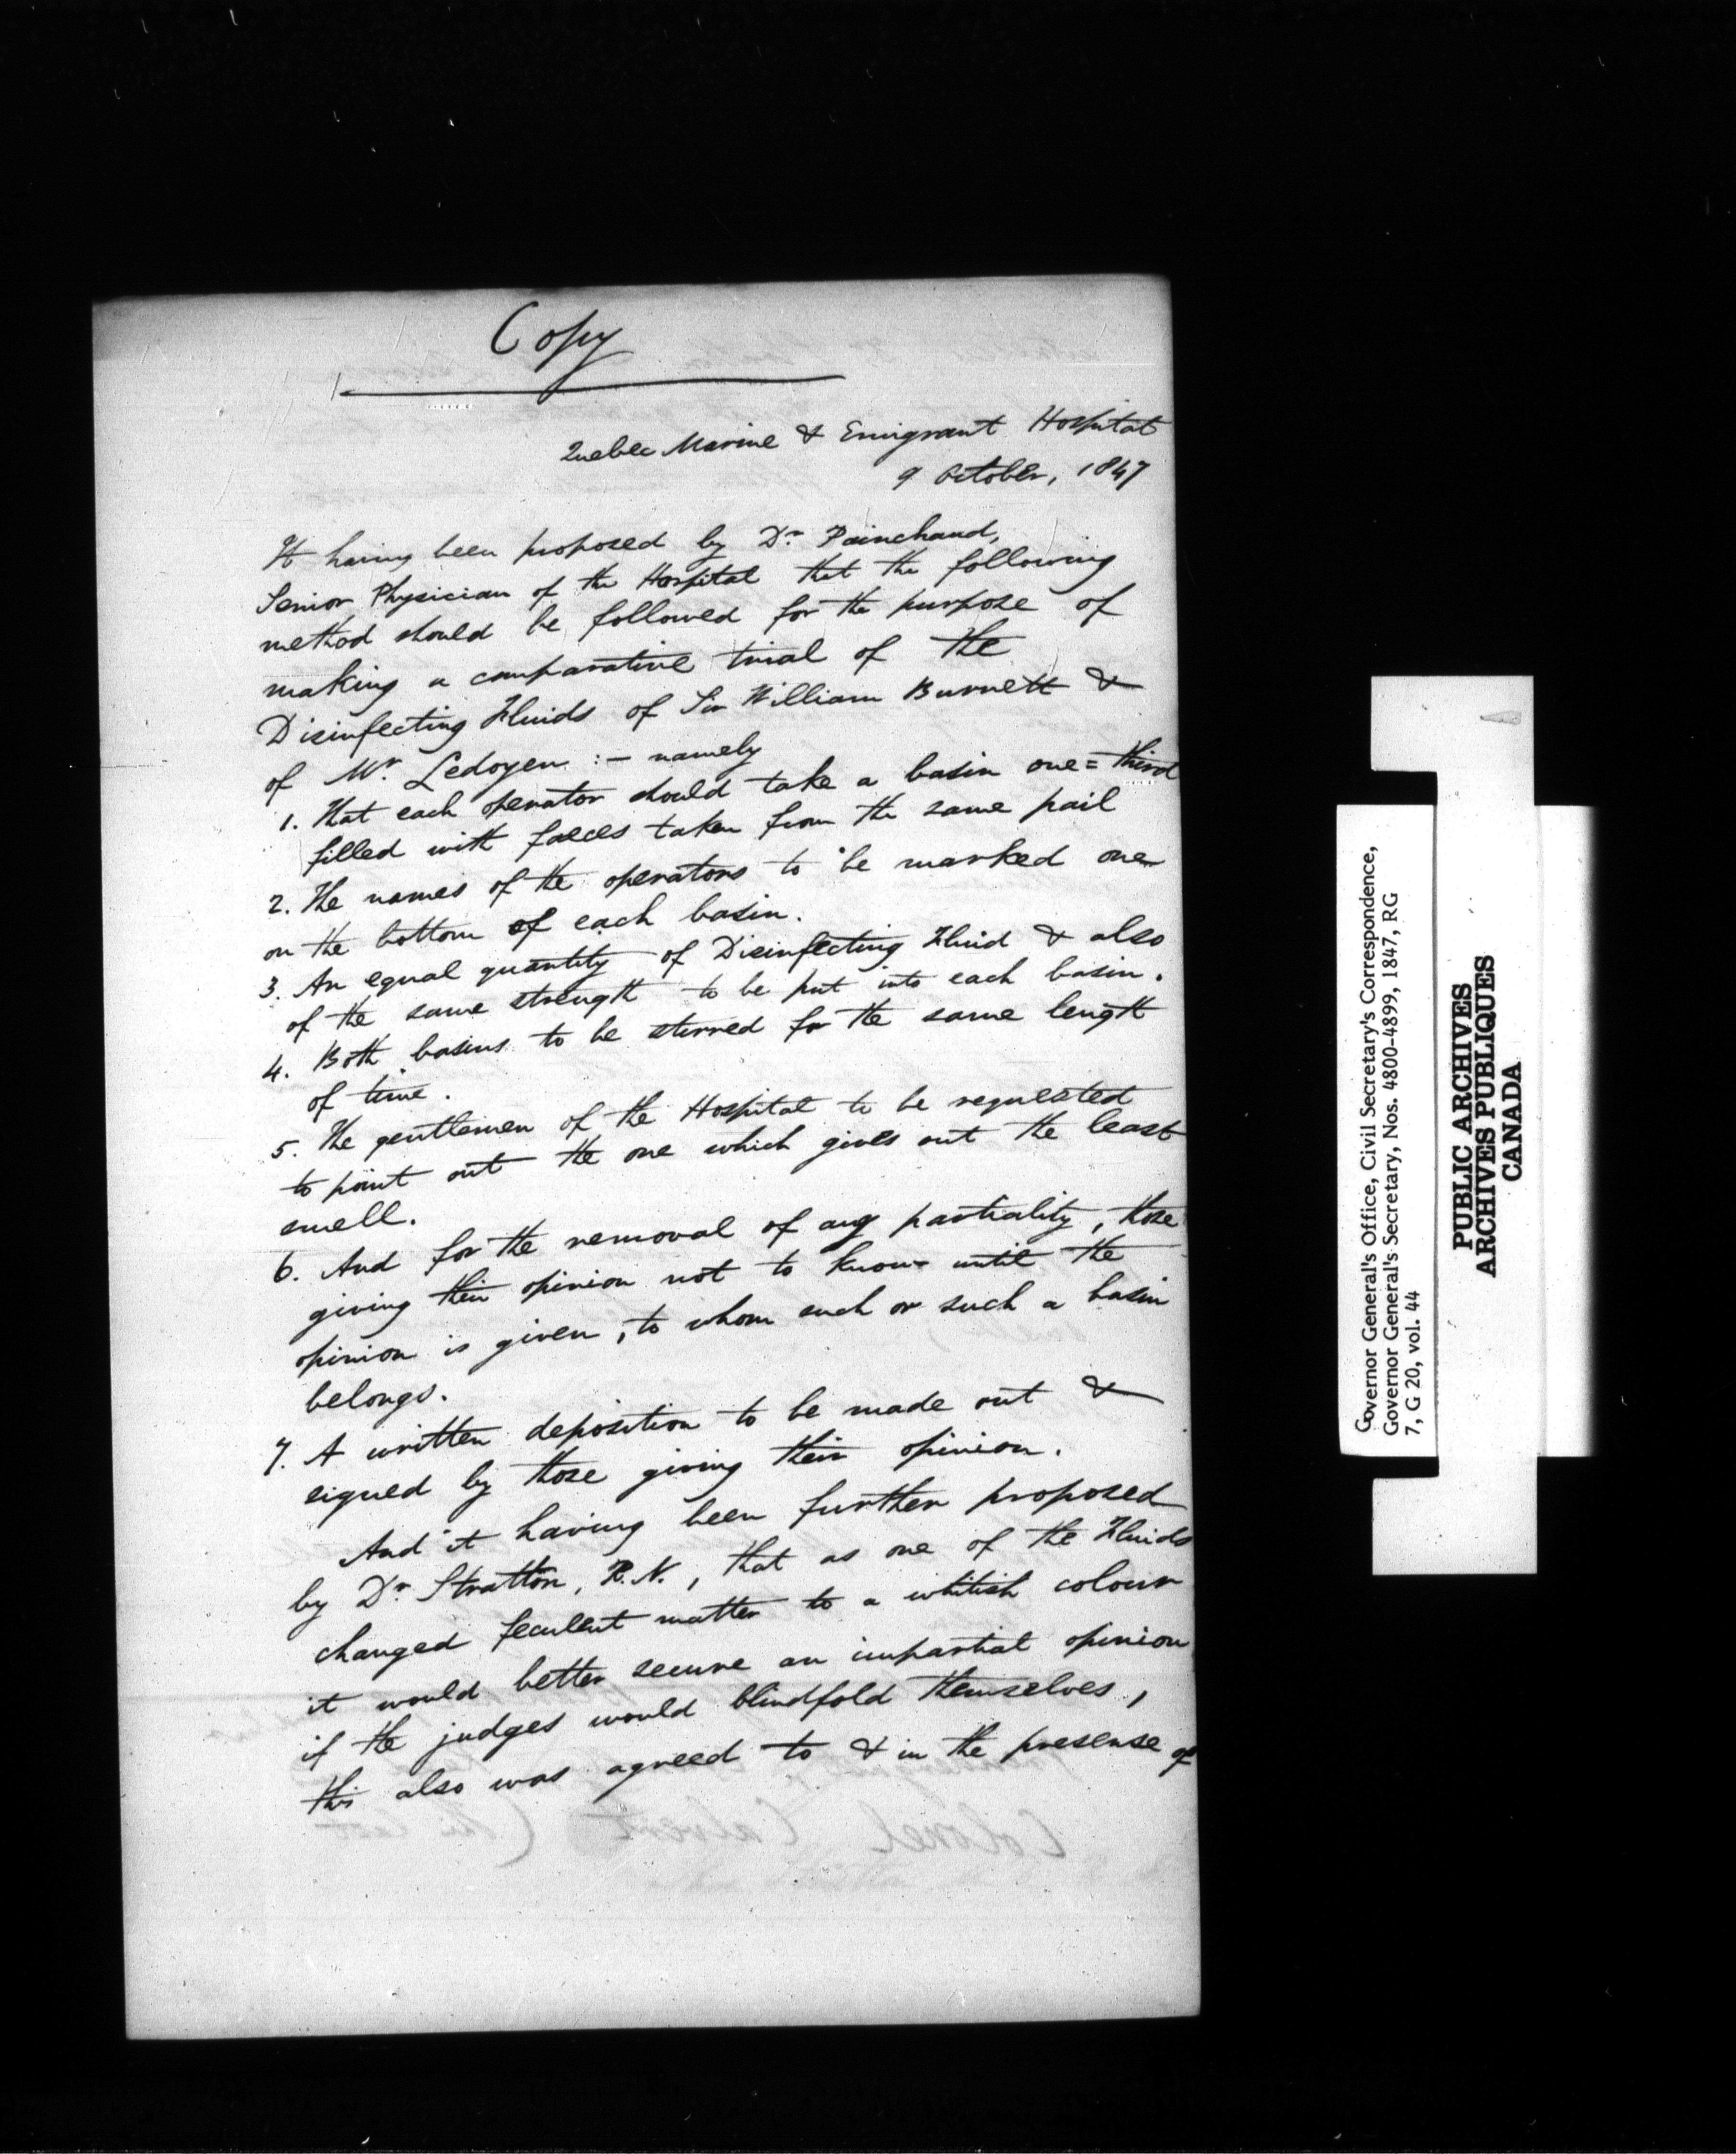 Copy
Quebec Marine & Emigrant Hospital
9 October, 1847
It having been proposed by Dr. Painchaud,
Senior Physician of the Hospital that the following
method should be followed for the purpose of
making a comparative trial of the
Disinfecting Fluids of Sir William Burnett &
of Mr. Ledoyen :- namely
1. That each operator should take a basin one=third
filled with faeces taken from the same pail
2. The names of the operators to be marked one
on the bottom of each basin.
3. An equal quantity of Disinfecting Fluid & also
of the same strength to be put into each basin.
4. Both basins to be stirred for the same length
of time.
5. The gentlemen of the Hospital to be requested
to point out the one which gives out the least
smell.
6. And for the removal of any partiality, those
giving their opinion not to know until the
opinion is given, to whom such or such a basin
belongs.
7. A written deposition to be made out &
signed by those giving their opinion.
And it having been further proposed
by Dr. Stratton, R.N., that as one of the Fluids
changed feculent matter to a whitish colour
it would better secure an impartial opinion
if the judges would blindfold themselves,
this also was agreed to & in the presense of
Governor General's Office, Civil Secretary's Correspondence,
Governor General's Secretary, Nos. 4800-4899, 1847, RG
7, G 20, vol. 44
PUBLIC ARCHIVES
ARCHIVES PUBLIQUES
CANADA